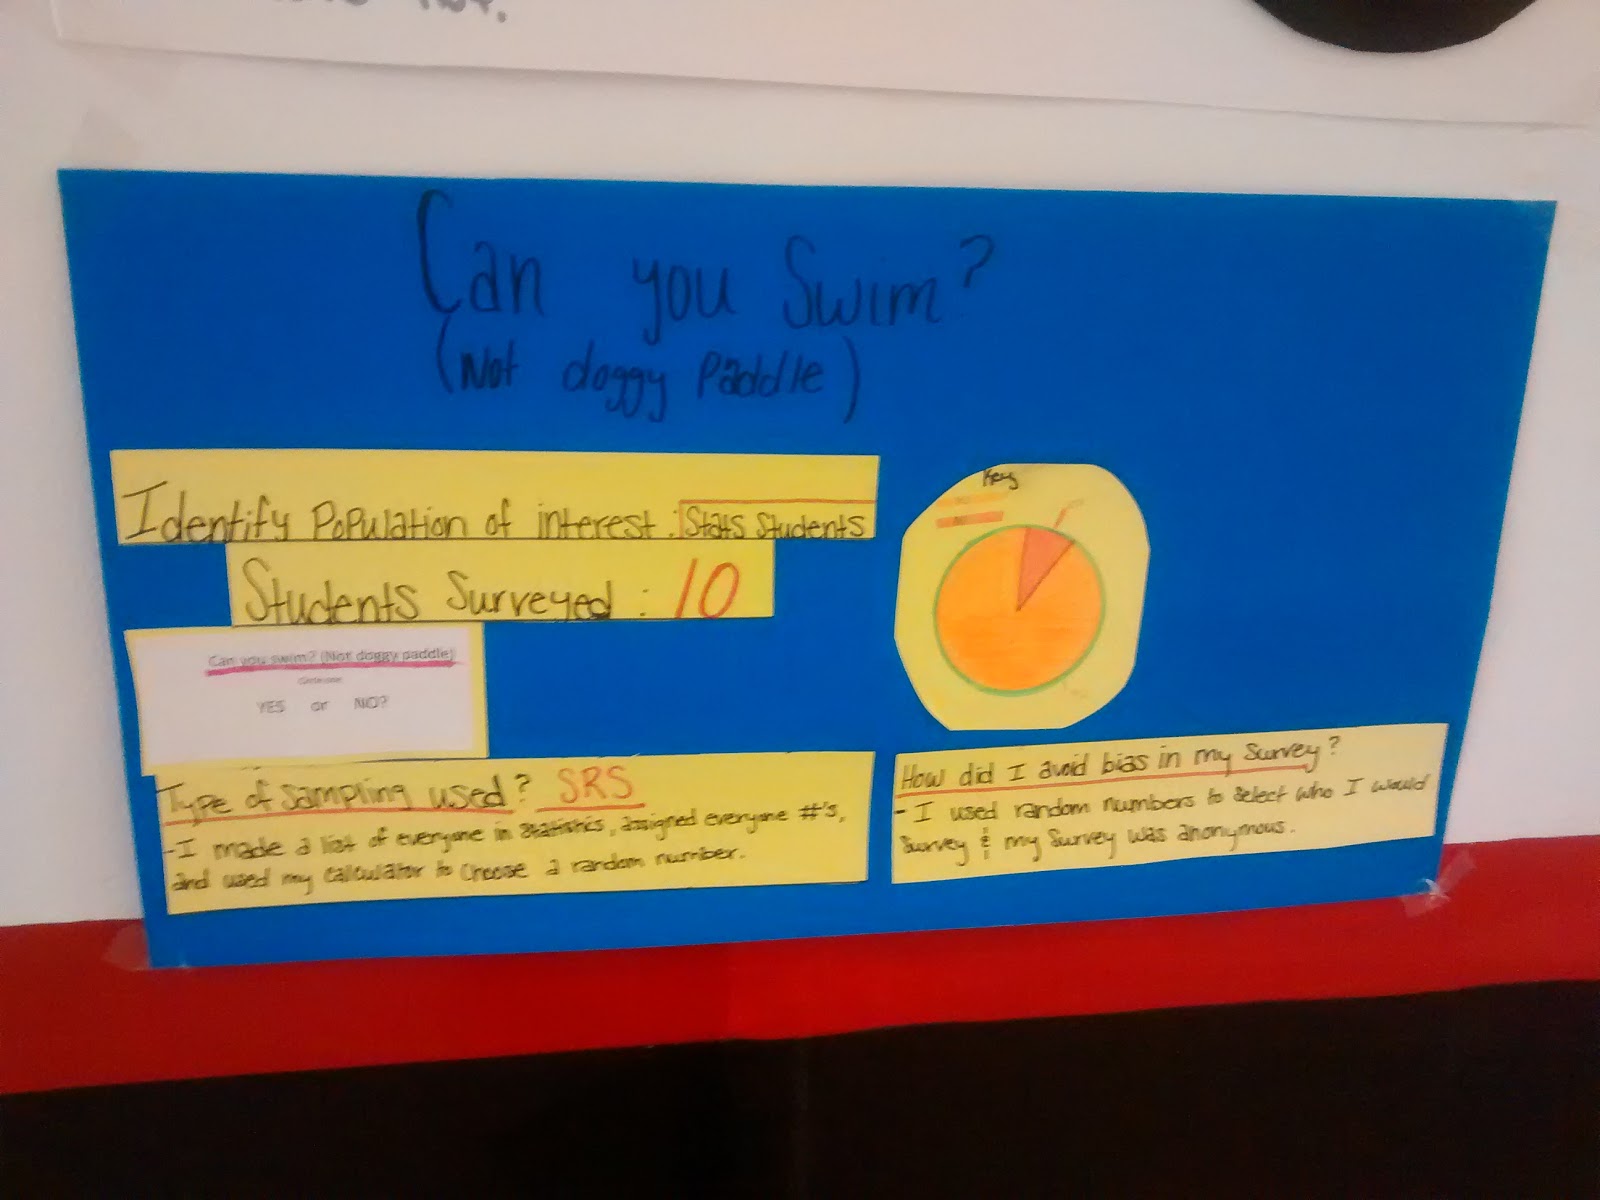 Can you Swim?
(Not doggy Paddle)
Identify Population of interest: Stats Students
Students Surveyed: 10
Can you swim? (Not doggy paddle)
YES or NO?
Type of Sampling used? SRS
-I made a list of everyone in statistics, assigned everyone #'s,
and used my calculator to choose a random number.
Key
How did I avoid bias in my Survey?
- I used random numbers to select who I would
Survey & my Survey was anonymous.